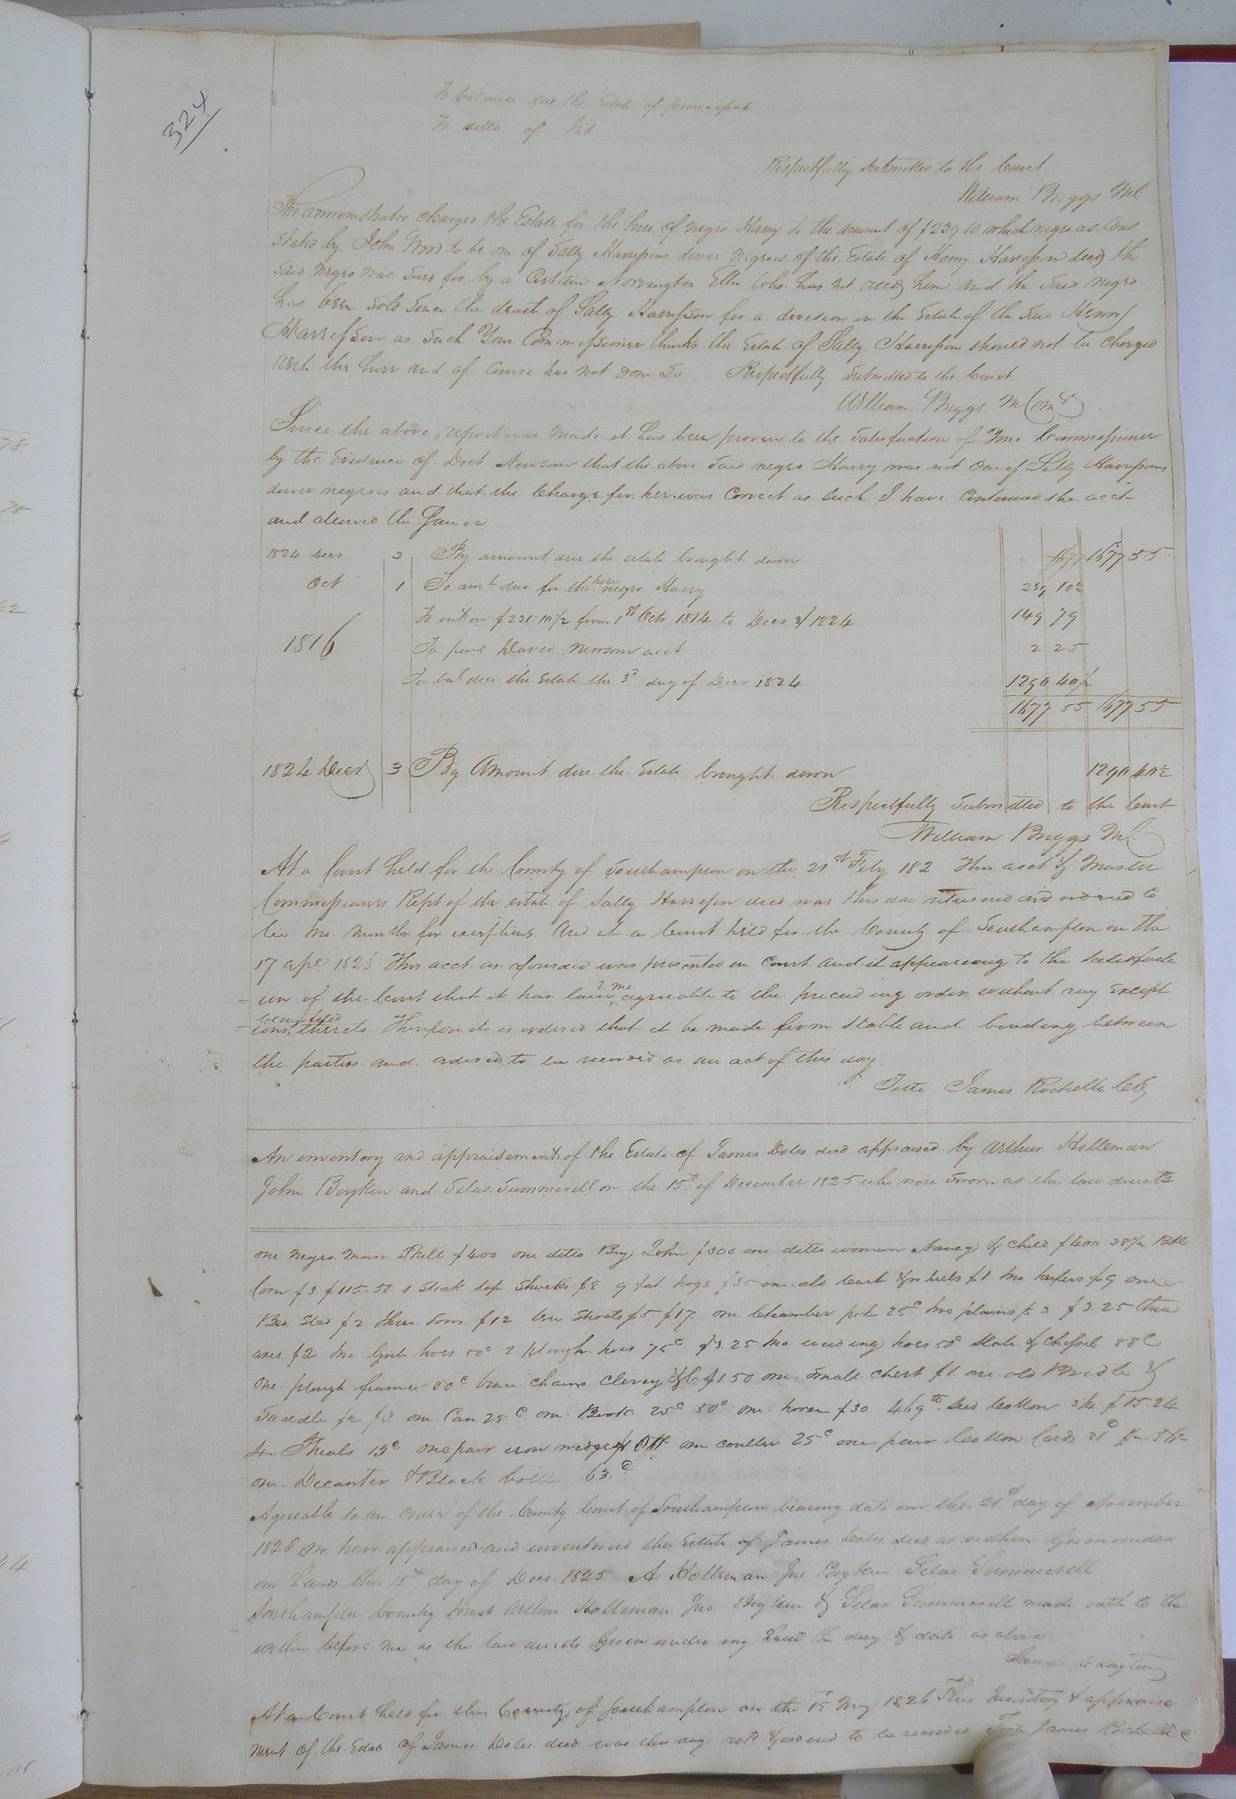 324
To balance due the Estate of principal
To ditto of Int
Respectfully Submitted to the Court
William Briggs MC
The administrator charges the Estate for the hire of negro Harry to the amount of $239 10 which negro as was
Stated by John Wood to be one of Sally Harrisons dower negroes of the Estate of Henry Harrison decd this
Said negro was sued for by a Certain Norvington Ellis who has not recd him and the Said negro
has been Sold Since the death of Sally Harrison for a division in the Estate of the Said Henry
Harrison as Such Your Commissioner thinks the Estate of Sally Harrison should not be Charged
with the hire and of Course has not done So Respectfully Submitted to the Court
William Briggs M Comr
Since the above report was made it has been proven to the Satisfaction of Your Commissioner
by the Evidence of Doct Newsom that the above Said negro Harry was not One of Sally Harrisons
dower negroes and that the Charge for her was Correct as Such I have Continued the acct
and altered the Same
1824 Decr 3 By amount due the estate brought down 1677 1677 55
Oct 1 To amt due for the hire negro Harry 239 10½
To int on $231.10½ from 1st Octr 1814 to Decr 3/1824 149 79
1816 To paid David Newsom acct 2 25
To bal due the Estate the 3d day of Decr 1824 1290 40½
1677 55 1677 55
1824 Decr 3 By Amount due the Estate brought down 1290 40½
Respectfully Submitted to the Court
William Briggs MC
At a Court held for the County of Southampton on the 21st Feby 182 This acct & Master
Commissioners Rept of the estate of Sally Harrison decd was this day returned and ordered to
lie two months for exceptions And at a Court held for the County of Southampton on the
17 Apl 1825 This acct as aforesaid was presented in Court and it appearing to the Satisfact
ion of the Court that it has lain 2 mo agreeable to the preceeding order without any Except
ions thereto Therefore it is ordered that it be made firm Stable and binding between
the parties and ordered to be recorded as an act of this day
Teste James Rochelle Clk
An inventory and appraisement of the Estate of James Doles decd appraised by Arthur Holleman
John Boykin and Silas Summerell on the 15th of December 1825 who were Sworn as the law directs
one negro man Phill $400 one ditto Boy John $300 one ditto woman Nancy & Child $400 38½ Bbls
Corn $3 $115.50 1 Stack top Shucks $8 9 fat hogs $35 one old Cart & wheels $1 two heifers $9 one
Bed Sted $2 three Sows $12 ten Shoats $5 $17 one Chamber pot 25c two plains $3 $3 25 three
axes $2 two Grub hoes 50c 2 plough hoes 75c $3.25 two weeding hoes 50c Slate & Chissel 88c
one plough frame 50c trace chains Clevey &C $1 50 one Small Chest $1 one old Bridle &
Saddle $2 $3 one Can 25c one Book 25c 50c one horse $30 469 lb Seed Cotton $15 24
Wheels 13c one pair iron wedges one coulter 25c one pair Cotton Cards 31c
one Decanter & Black bottle 63c
Agreeable to an Order of the County Court of Southampton bearing date on the 21st day of November
1825 We have appraised and inventoried the Estate of James Doles decd as within Given under
our hands this 15th day of Decr 1825 A Holleman Jno Boykin Silas Summerell
Southampton County Towit Arthur Holleman Jno Boykin & Silas Summerell made oath to the
within before me as the law directs Given under my hand the day & date as above
James Clayton
At a Court held for the County of Southampton on the 15 May 1826 This Inventory & appraise
ment of the Estate of James Doles decd was this day retd & ordered to be recorded Teste James Rochelle C